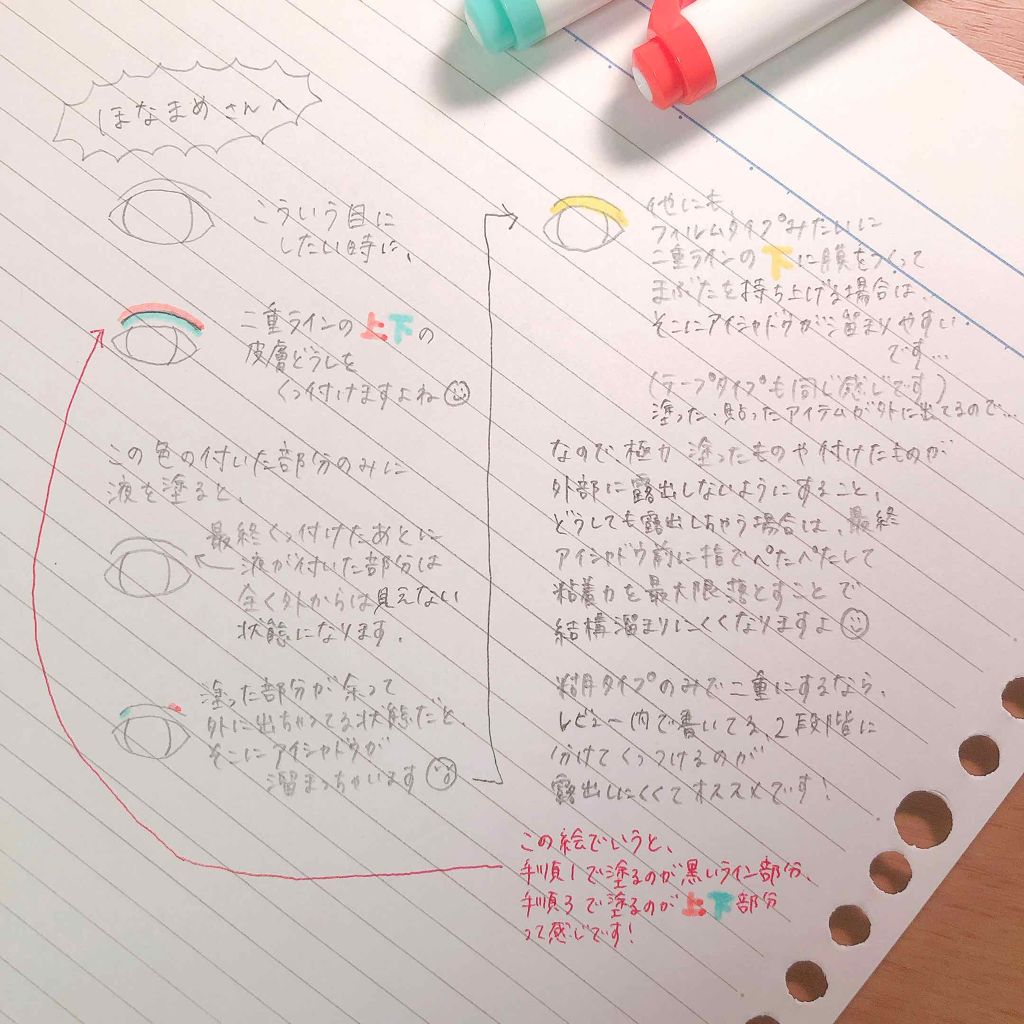 ほなまめさんへ
こういう目に
したい時に、
二重ラインの上下の
皮膚どうしを
くっ付けますよね
この色の付いた部分のみに
液を塗ると、
最終くっ付けたあとに
液が付いた部分は
全く外からは見えない
状態になります。
塗った部分が余って
外に出ちゃってる状態だと、
そこにアイシャドウが
溜まっちゃいます
他にも、
フィルムタイプみたいに
二重ラインの下に膜をつくって
まぶたを持ち上げる場合は、
そこにアイシャドウが溜まりやすい
です…
(テープタイプも同じ感じです)
塗った、貼ったアイテムが外に出てるので…
なので極力 塗ったものや付けたものが
外部に露出しないようにすること、
どうしても露出しちゃう場合は、最終
アイシャドウ前に指でぺたぺたして
粘着力を最大限落とすことで
結構溜まりにくくなりますよ
糊タイプのみで二重にするなら、
レビュー内で書いてる、2段階に
分けてくっつけるのが
露出しにくくてオススメです!
この絵でいうと、
手順1で塗るのが黒いライン部分、
手順3で塗るのが上下部分
って感じです!